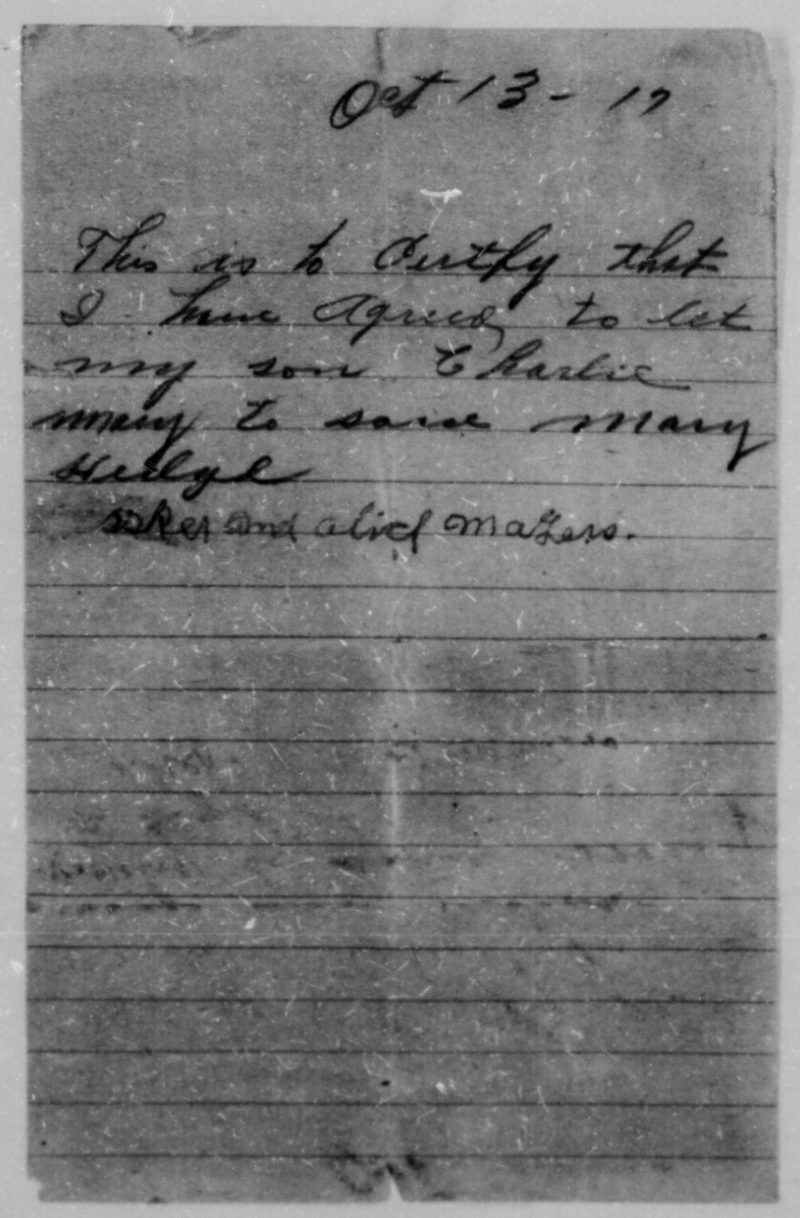 Oct 13 - 17
This is to Certfy that
I have Agreed to let
my son Charlie
mary to said Mary
Hedge
and alice